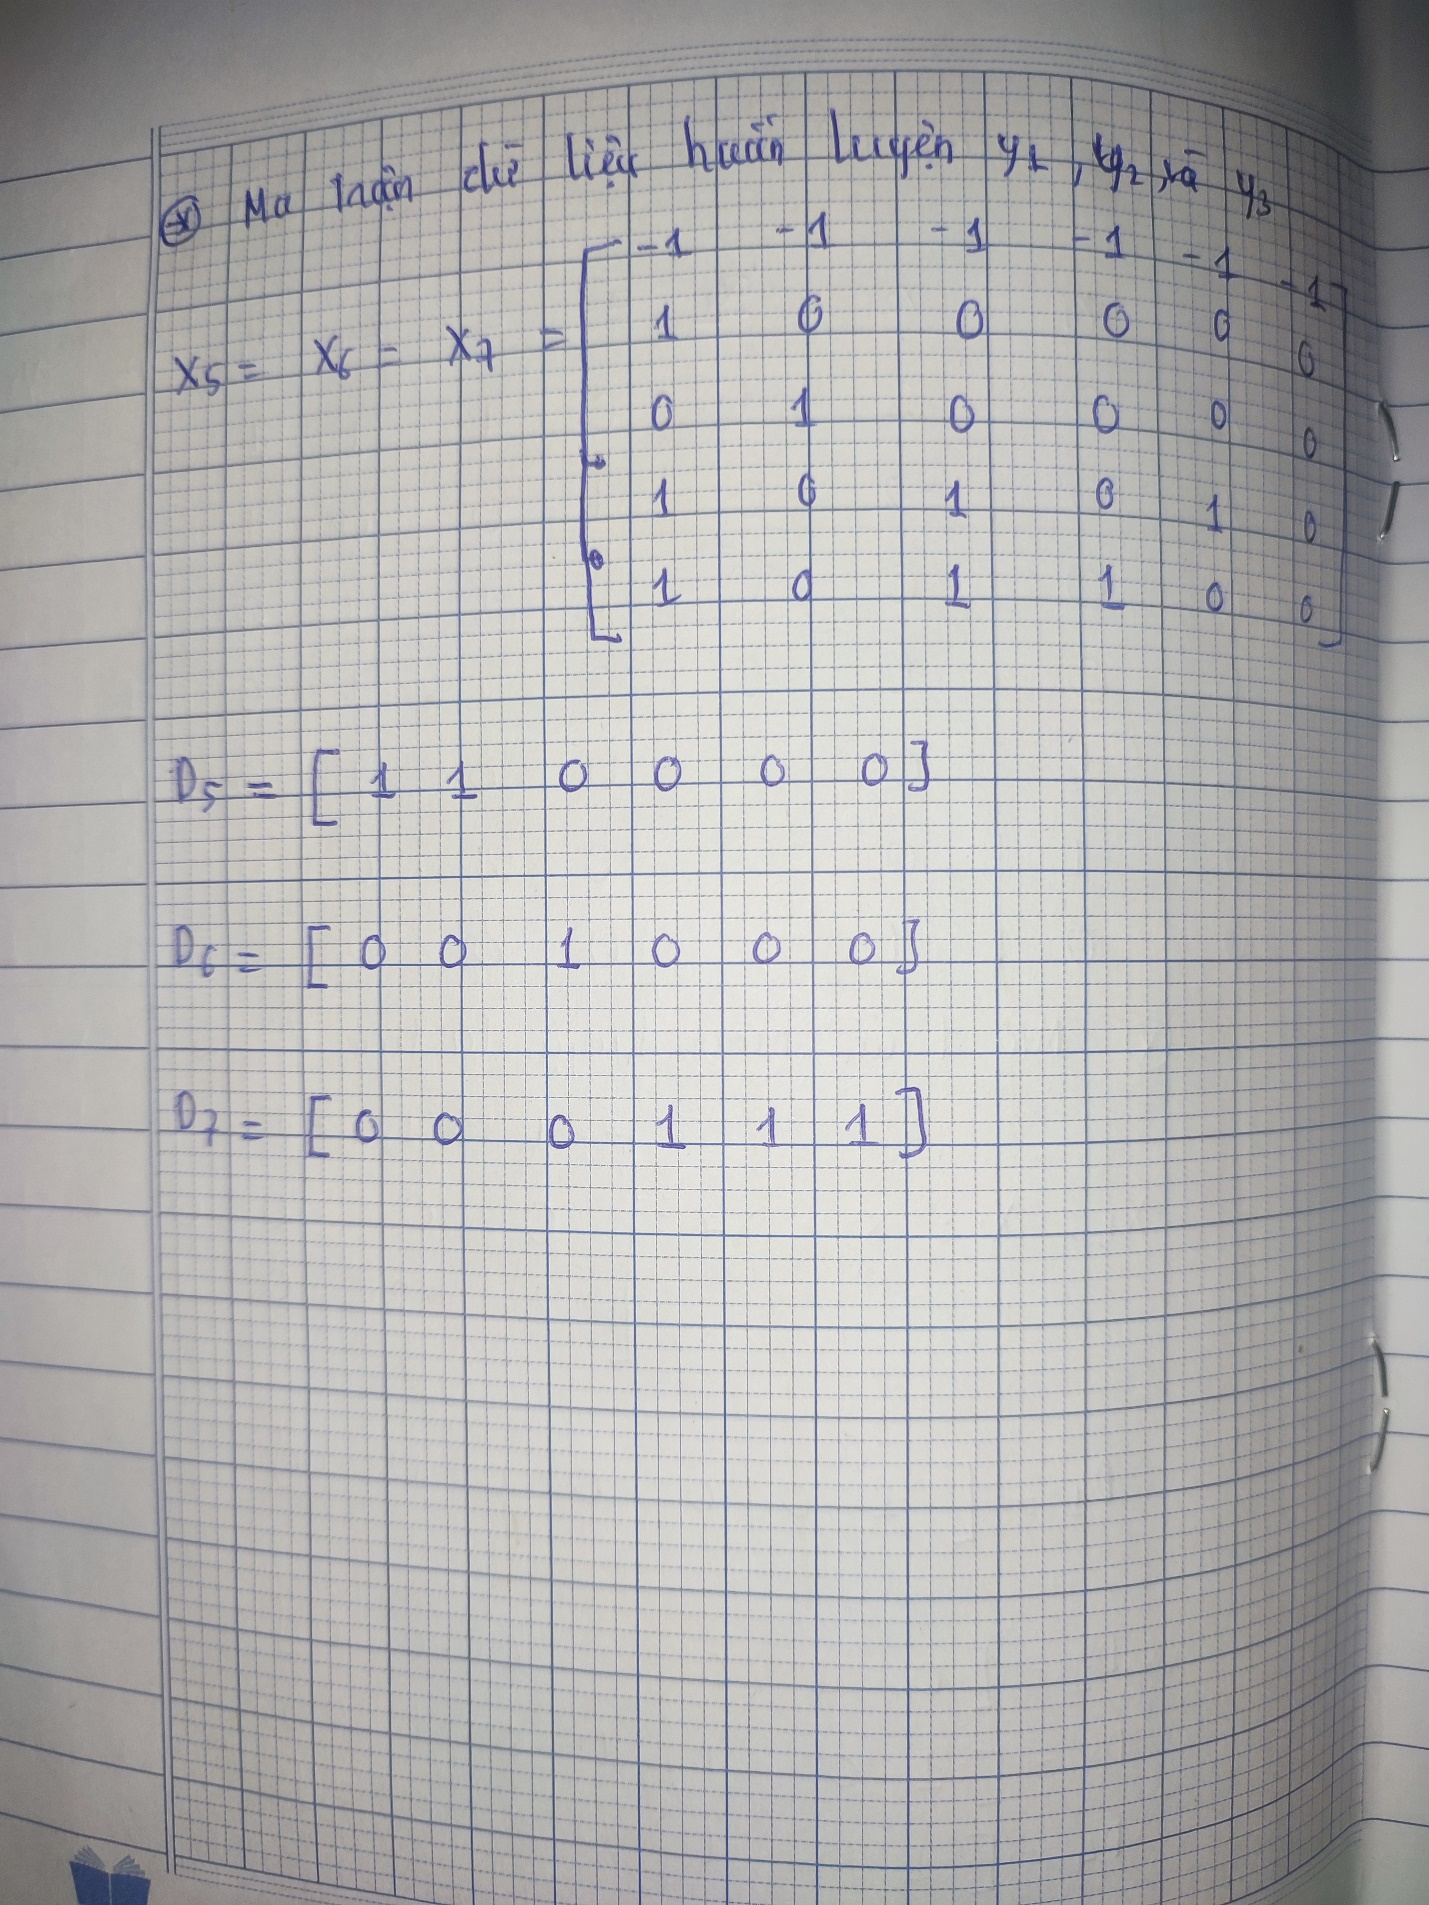 ⊛ Ma trận dữ liệu huấn luyện y1, y2, và y3
-1 -1 -1 -1 -1 -1
X5 = X6 = X7 = 1 0 0 0 0 0
0 1 0 0 0 0
1 0 1 0 1 0
1 0 1 1 0 0
D5 = [ 1 1 0 0 0 0 ]
D6 = [ 0 0 1 0 0 0 ]
D7 = [ 0 0 0 1 1 1 ]